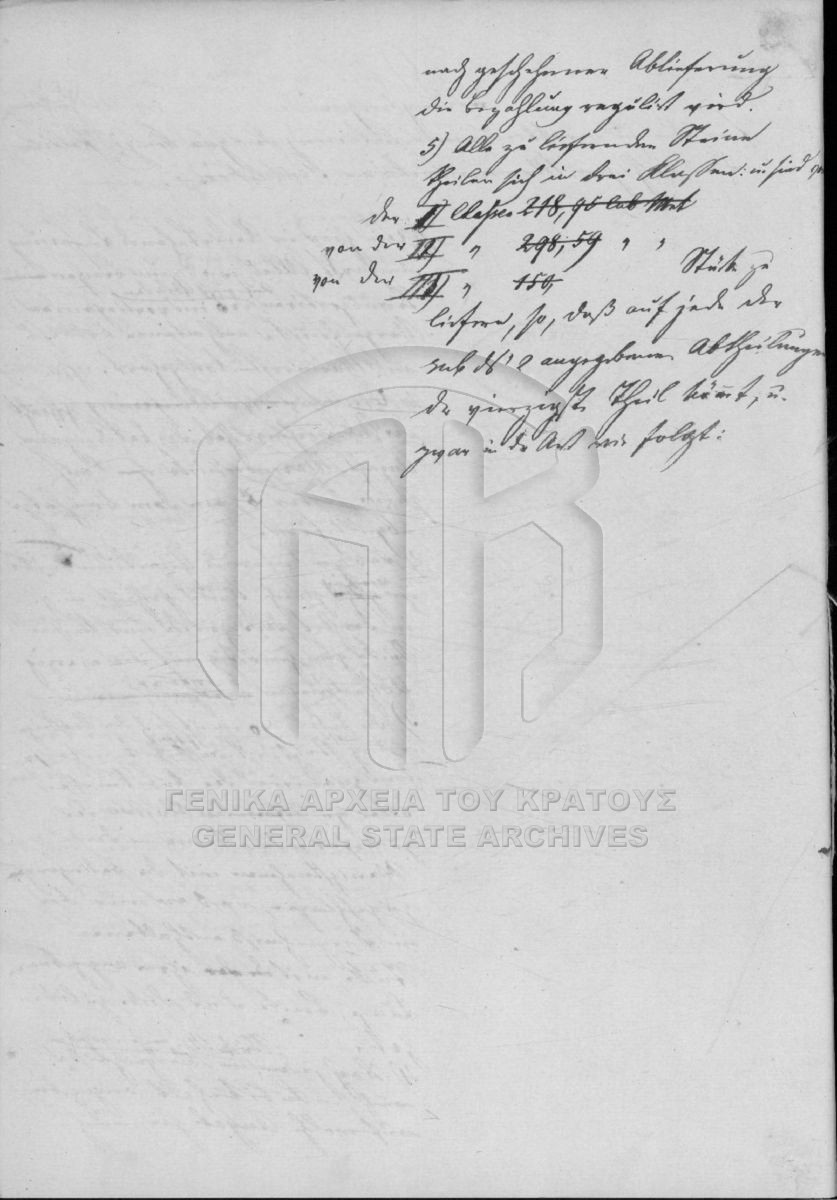 nach geschehener Ablieferung
die Bezahlung regulirt wird.
5) Alle zu liefernden Steine
theilen sich in drei Klassen: u. sind
der I) Classe 218,96 Cub Met
von der II) " 298,59 " "
von der III) " 150, Stück zu
liefern, so, daß auf jede der
sub angegebenen Abtheilungen
der vierzigste Theil kömmt, u.
zwar in der Art wie folgt:
ΓΕΝΙΚΑ ΑΡΧΕΙΑ ΤΟΥ ΚΡΑΤΟΥΣ
GENERAL STATE ARCHIVES